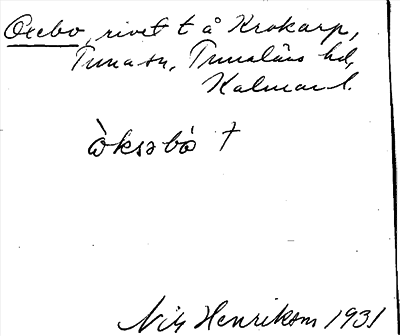 Oxebo, rivet t å Krokarp,
Tuna sn, Tunaläns hd,
Kalmar l.
òksəbò †
Nils Henriksson 1931